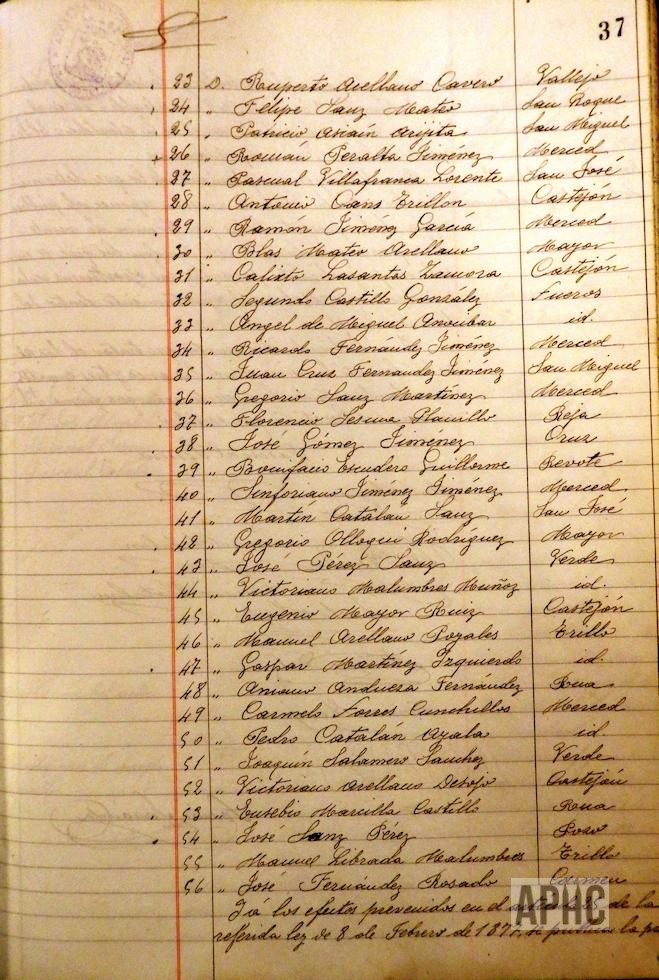 37
23 D. Ruperto Arellano Cavero Vallejo
24 " Felipe Sanz Mateo San Roque
25 " Patricio Asiáin Arijita San Miguel
26 " Román Peralta Jiménez Merced
27 " Pascual Villafranca Lorente San José
28 " Antonio Sans Trillon Castejón
29 " Ramón Jiménez García Merced
30 " Blas Mateo Arellano Mayor
31 " Calixto Lasantas Zamora Castejón
32 " Segundo Castillo González Fueros
33 " Angel de Miguel id.
34 " Ricardo Fernández Jiménez Merced
35 " Juan Cruz Fernandez Jiménez San Miguel
36 " Gregorio Sanz Martínez Merced
37 " Florencio Sesma Planillo Reja
38 " José Gómez Jimenez Cruz
39 " Bonifacio Escudero Guillorme Revote
40 " Sinforiano Jiménez Jiménez Merced
41 " Martin Catalán Sanz San José
42 " Gregorio Olloqui Rodríguez Mayor
43 " José Pérez Sanz Verde
44 " Victoriano Malumbres Muñoz id.
45 " Eugenio Mayor Ruiz Castejón
46 " Manuel Arellano Poyales Trillo
47 " Gaspar Martínez Izquierdo id.
48 " Aniano Andueza Fernández Rua
49 " Carmelo Forres Cunchillos Merced
50 " Pedro Catalán Ayala id.
51 " Joaquín Salamero Sanchez Verde
52 " Victoriano Arellano Desojo Castejón
53 " Eusebio Marcilla Castillo Rua
54 " José Sanz Pérez Poso
55 " Manuel Librada Malumbres Trillo
56 " José Fernández Rosado Carmen
Y á los efectos prevenidos en el de la
referida ley de 8 de Febrero de 1877, se publica la
APHC